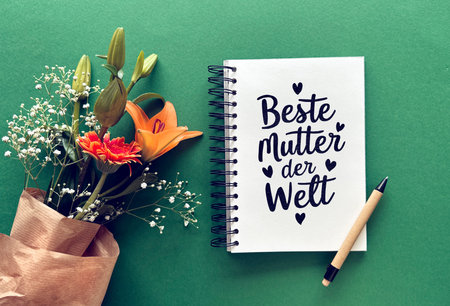 Beste
Mutter
der
Welt